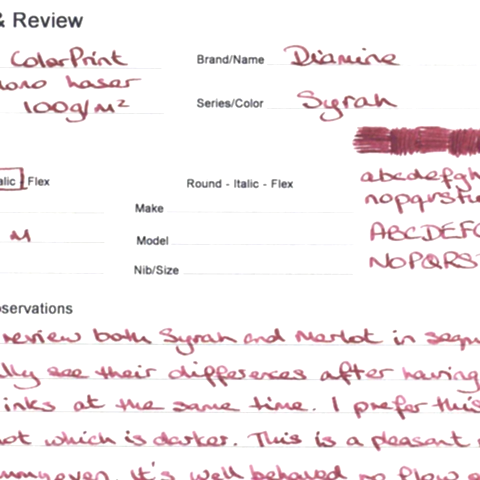 & Review
ColorPrint
Brand/Name Diamine
ono Laser
100g/m²
Series/Color Syrah
alic - Flex
Round - Italic - Flex
abcdefgh
nopqrstu
Make
M
Model
ABCDEFG
NOPQRS
Nib/Size
servations
review both Syrah and Merlot in sequ
lly see their differences after having
inks at the same time. I prefer this
ot which is darker. This is a pleasant
even. It's well behaved no flow